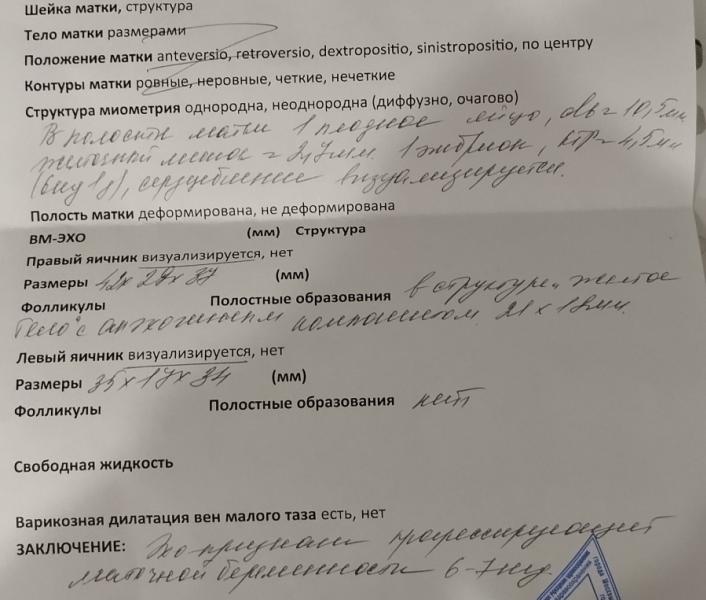 Шейка матки, структура
Тело матки размерами
Положение матки anteversio, retroversio, dextropositio, sinistropositio, по центру
Контуры матки ровные, неровные, четкие, нечеткие
Структура миометрия однородна, неоднородна (диффузно, очагово)
В полости матки 1 плодное яйцо, dвн = 10,5 мм
желточный мешок = 2,7 мм. 1 эмбрион, ктр = 4,5 мм
(6 нед 1 д), сердцебиение визуализируется.
Полость матки деформирована, не деформирована
ВМ-ЭХО (мм) Структура
Правый яичник визуализируется, нет
Размеры 42 x 29 x 37 (мм)
Фолликулы Полостные образования в структуре желтое
тело с анэхогенным компонентом 21 x 18 мм.
Левый яичник визуализируется, нет
Размеры 35 x 17 x 34 (мм)
Фолликулы Полостные образования нет
Свободная жидкость
Варикозная дилатация вен малого таза есть, нет
ЗАКЛЮЧЕНИЕ: Эхо-признаки прогрессирующей
маточной беременности 6-7 нед.